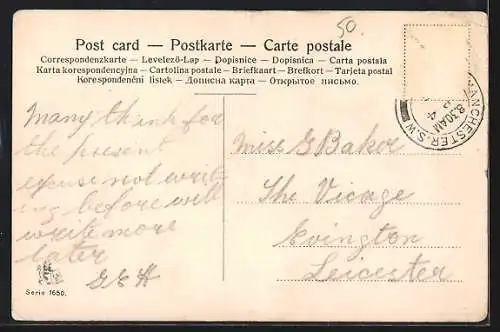 50.
Post card — Postkarte — Carte postale
Correspondenzkarte – Levelező-Lap – Dopisnice – Dopisnica – Carta postala
Karta korespondencyjna – Cartolina postale – Briefkaart – Brefkort – Tarjeta postal
Korespondenční lístek – Дописна карта – Открытое письмо.
MANCHESTER.S.W
8.30AM
Many think for
the present
excuse not writ-
ing before will
write more
later
G E H
Miss G Baker
The Vicage
Evington
Leicester
Serie 1650.